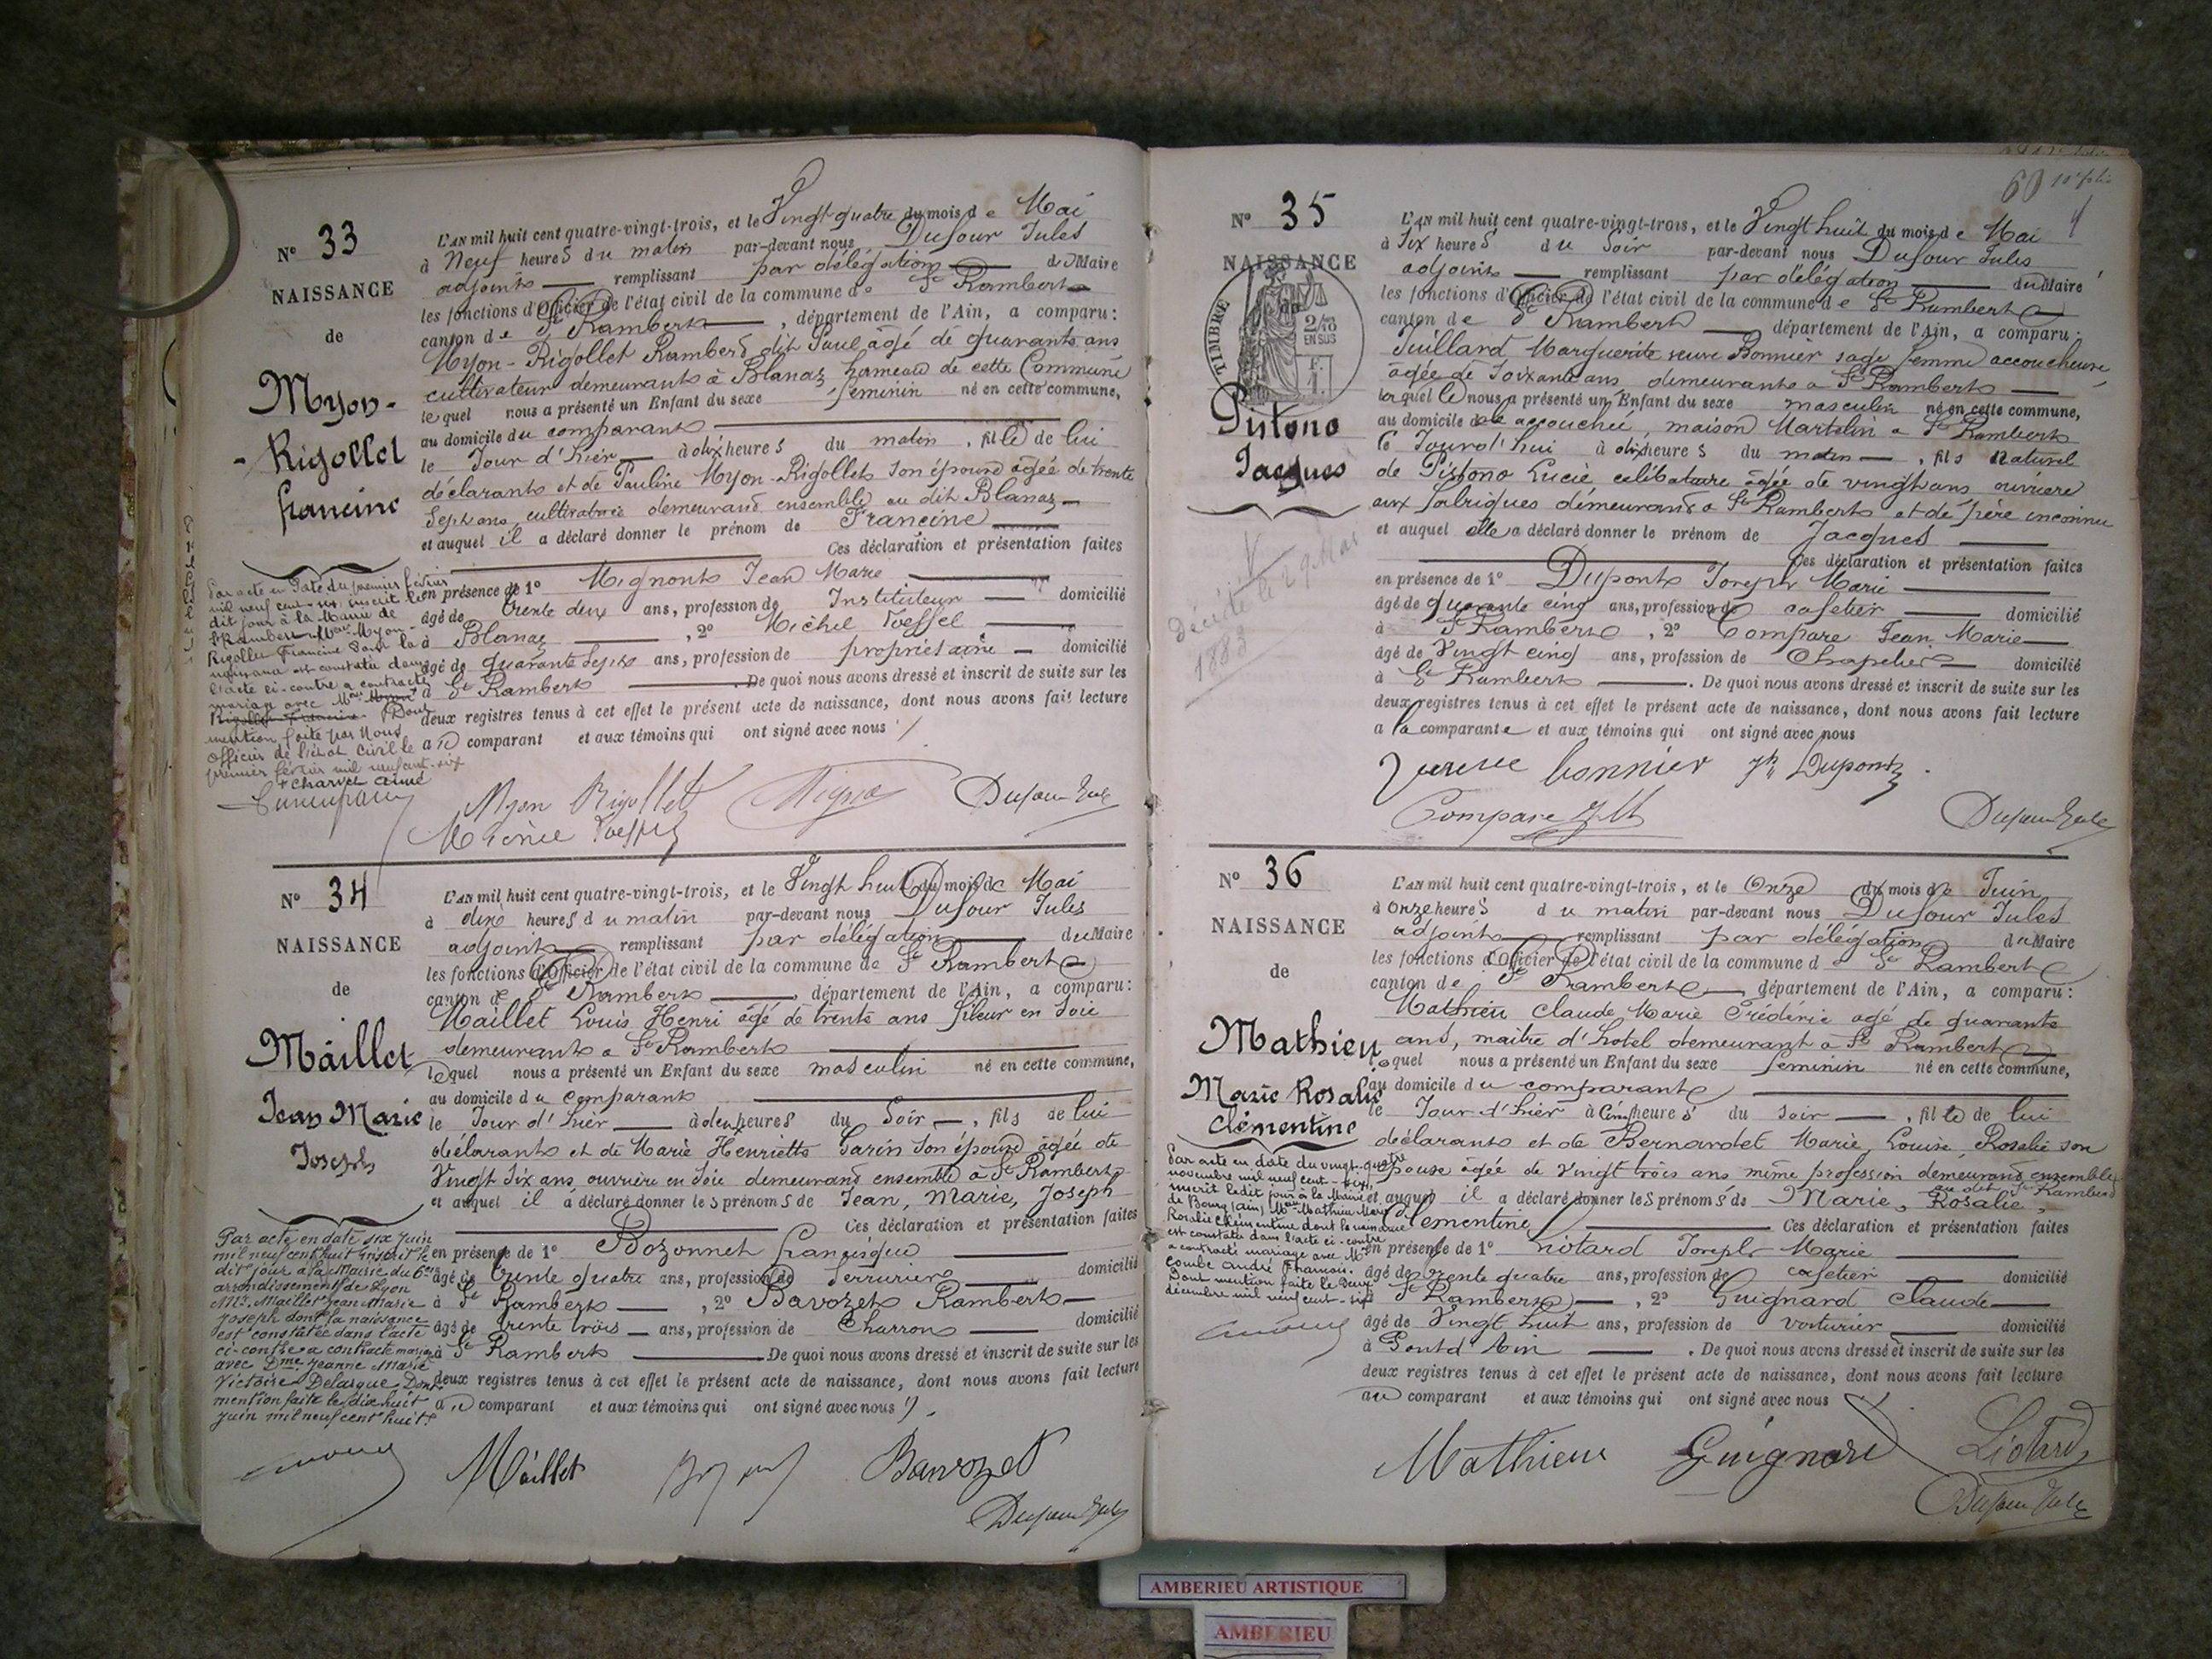 N° 33
NAISSANCE
de
Myon-
-Rigollet
francine
L'AN mil huit cent quatre-vingt-trois, et le Vingt quatre du mois de Mai
à Neuf heures du matin par-devant nous Dufour Jules
adjoint remplissant par délégation du Maire
les fonctions d'Officier de l'état civil de la commune de St Rambert
canton de St Rambert, département de l'Ain, a comparu:
Myon-Rigollet Rambert dit Paul âgé de quarante ans
cultivateur demeurant à Blanaz hameau de cette Commune
lequel nous a présenté un Enfant du sexe féminin né en cette commune,
au domicile du comparant
le Jour d'hier à dix heures du matin, fille de lui
déclarant et de Pauline Myon-Rigollet son épouse âgée de trente
Sept ans, cultivatrice demeurant ensemble au dit Blanaz
et auquel il a déclaré donner le prénom de Francine
Ces déclaration et présentation faites
en présence de 1° Mignont Jean Marie
âgé de trente deux ans, profession de Instituteur domicilié
à Blanaz, 2° Michel Toeffel
âgé de quarante Sept ans, profession de propriétaire domicilié
à St Rambert. De quoi nous avons dressé et inscrit de suite sur les
deux registres tenus à cet effet le présent acte de naissance, dont nous avons fait lecture
au comparant et aux témoins qui ont signé avec nous
Par acte en date du premier février
mil neuf cent-six, inscrit le
dit jour à la Mairie de
St Rambert Myon-
Rigollet Francine dont la
naissance est constatée dans
l'acte ci-contre a contracté
mariage avec
Rigollet Francine Dont
mention faite par Nous
Officier de l'état civil le
premier février mil neuf cent-six
Charvet aimé
Myon Rigollet Dufour Jules
N° 34
NAISSANCE
de
Maillet
Jean Marie
Joseph
L'AN mil huit cent quatre-vingt-trois, et le Vingt huit du mois de Mai
à dix heures du matin par-devant nous Dufour Jules
adjoint remplissant par délégation du Maire
les fonctions d'Officier de l'état civil de la commune de St Rambert
canton de St Rambert, département de l'Ain, a comparu:
Maillet Louis Henri âgé de trente ans fileur en Soie
demeurant à St Rambert
lequel nous a présenté un Enfant du sexe masculin né en cette commune,
au domicile du comparant
le Jour d'hier à deux heures du Soir, fils de lui
déclarant et de Marie Henriette Garin son épouse âgée de
Vingt Six ans, ouvrière en Soie demeurant ensemble à St Rambert
et auquel il a déclaré donner les prénoms de Jean, Marie, Joseph
Ces déclaration et présentation faites
en présence de 1° Bozonnet françisque
âgé de trente quatre ans, profession de Serrurier domicilié
à St Rambert, 2° Bavozet Rambert
âgé de trente trois ans, profession de Charron domicilié
à St Rambert. De quoi nous avons dressé et inscrit de suite sur les
deux registres tenus à cet effet le présent acte de naissance, dont nous avons fait lecture
au comparant et aux témoins qui ont signé avec nous
Par acte en date six juin
mil neuf cent huit inscrit le
dit jour à la Mairie du 6e
arrondissement de Lyon
Mr. Maillet Jean Marie
Joseph dont la naissance
est constatée dans l'acte
ci-contre a contracté mariage
avec Dme Jeanne Marie
Victoire Delasque Dont
mention faite le dix huit
juin mil neuf cent huit.
Maillet Bavozet
Dufour Jules
60
N° 35
NAISSANCE
de
TIMBRE
2/10
EN SUS
Pistono
Jacques
décédé le 29 Mai
1883
L'AN mil huit cent quatre-vingt-trois, et le Vingt huit du mois de Mai
à Six heures du Soir par-devant nous Dufour Jules
adjoint remplissant par délégation du Maire
les fonctions d'Officier de l'état civil de la commune de St Rambert
canton de St Rambert département de l'Ain, a comparu:
Juillard Marguerite veuve Bonnier sage femme accoucheuse
âgée de Soixante ans demeurant à St Rambert
laquelle nous a présenté un Enfant du sexe masculin né en cette commune,
au domicile de l'accouchée, maison Martelin à St Rambert
le Jourd'hui à dix heures du matin, fils naturel
de Pistono Lucie célibataire âgée de vingt ans, ouvrière
aux fabriques demeurant à St Rambert et de père inconnu
et auquel elle a déclaré donner le prénom de Jacques
Ces déclaration et présentation faites
en présence de 1° Dupont Joseph Marie
âgé de quarante cinq ans, profession de cafetier domicilié
à St Rambert, 2° Compare Jean Marie
âgé de Vingt cinq ans, profession de Chapelier domicilié
à St Rambert. De quoi nous avons dressé et inscrit de suite sur les
deux registres tenus à cet effet le présent acte de naissance, dont nous avons fait lecture
a la comparante et aux témoins qui ont signé avec nous
veuve bonnier Jh Dupont
Compare JM Dufour Jules
N° 36
NAISSANCE
de
Mathieu
Marie Rosalie
Clémentine
L'AN mil huit cent quatre-vingt-trois, et le Onze du mois de Juin
à onze heures du matin par-devant nous Dufour Jules
adjoint remplissant par délégation du Maire
les fonctions d'Officier de l'état civil de la commune de St Rambert
canton de St Rambert, département de l'Ain, a comparu:
Mathieu Claude Marie Frédéric âgé de quarante
ans, maitre d'hotel demeurant à St Rambert
lequel nous a présenté un Enfant du sexe féminin né en cette commune,
au domicile du comparant
le Jour d'hier à Cinq heures du soir, fille de lui
déclarant et de Bernardet Marie Louise Rosalie son
épouse âgée de Vingt trois ans même profession demeurant ensemble
au dit St Rambert
et auquel il a déclaré donner les prénoms de Marie, Rosalie,
Clementine Ces déclaration et présentation faites
en présence de 1° Liotard Joseph Marie
âgé de trente quatre ans, profession de cafetier domicilié
à St Rambert, 2° Guignard Claude
âgé de Vingt huit ans, profession de voiturier domicilié
à Pont d'Ain. De quoi nous avons dressé et inscrit de suite sur les
deux registres tenus à cet effet le présent acte de naissance, dont nous avons fait lecture
au comparant et aux témoins qui ont signé avec nous
Par acte en date du vingt-quatre
novembre mil neuf cent-six,
inscrit ledit jour à la Mairie
de Bourg (ain) Mathieu Marie
Rosalie Clémentine dont la naissance
est constatée dans l'acte ci-contre
a contracté mariage avec Mr
Combe André François.
Dont mention faite le deux
décembre mil neuf cent-six
Mathieu Guignard Liotard
Dufour Jules
AMBERIEU ARTISTIQUE
AMBERIEU